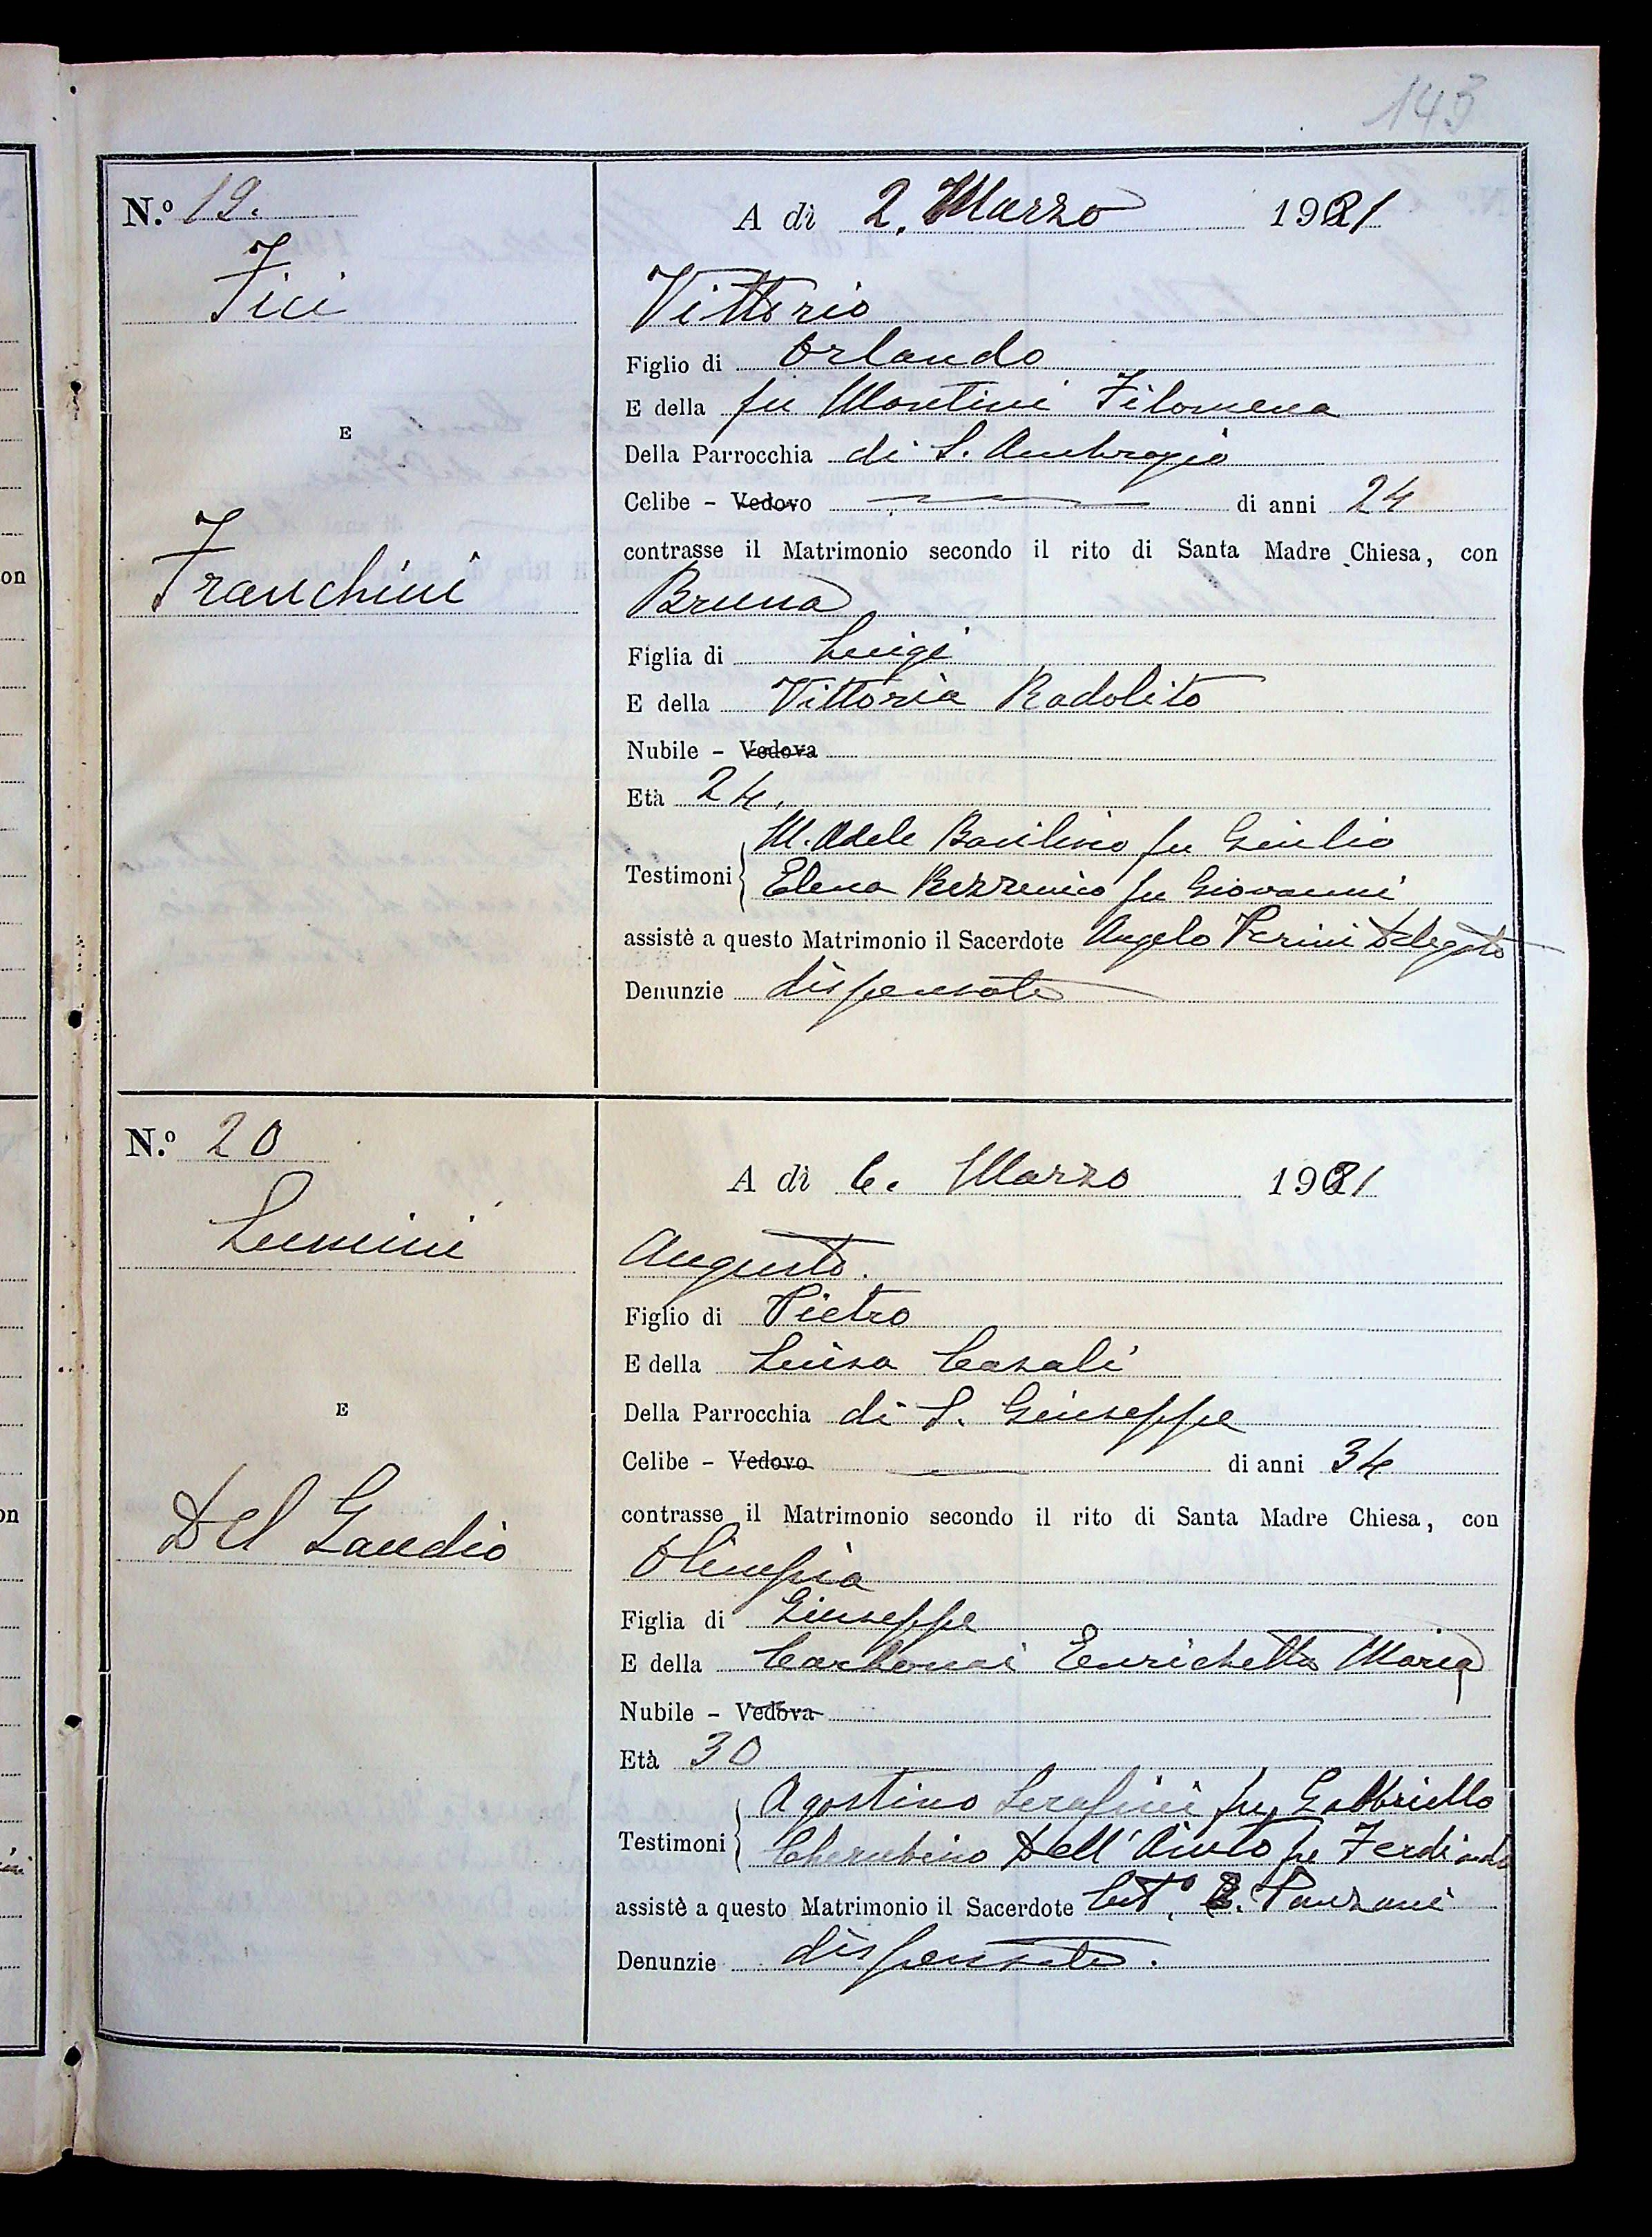 143
N.º 19.
A dì 2. Marzo 1921
Fici
Vittorio
Figlio di Orlando
E della fu Montini Filomena
E
Della Parrocchia di S. Ambrogio
Celibe - Vedovo di anni 24
contrasse il Matrimonio secondo il rito di Santa Madre Chiesa, con
Franchini
Bruna
Figlia di Luigi
E della Vittoria Radolito
Nubile - Vedova
Età 24.
M. Adele fu Giulio
Testimoni
Elena fu Giovanni
assistè a questo Matrimonio il Sacerdote Angelo Perini Delegato
Denunzie dispensate
N.º 20
A dì 6. Marzo 1921
Lumini
Augusto.
Figlio di Pietro
E della Luisa Casali
E
Della Parrocchia di S. Giuseppe
Celibe - Vedovo di anni 34
contrasse il Matrimonio secondo il rito di Santa Madre Chiesa, con
Del Gaudio
Olimpia
Figlia di Giuseppe
E della Enrichetta Maria
Nubile - Vedova
Età 30
Agostino Serafini fu Gabbriello
Testimoni
Cherubino Dell'Aiuto fu Ferdinando
assistè a questo Matrimonio il Sacerdote Panzani
Denunzie dispensate.
on
on